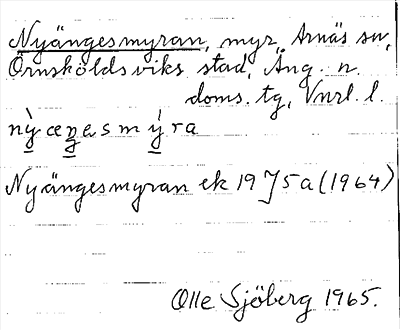 Nyängesmyran, myr, Arnäs sn,
Örnsköldsviks stad, Ång. n.
doms. tg, Vnrl. l.
nỳæŋesmýra
Nyängesmyran ek 19 J5a (1964)
Olle Sjöberg 1965.